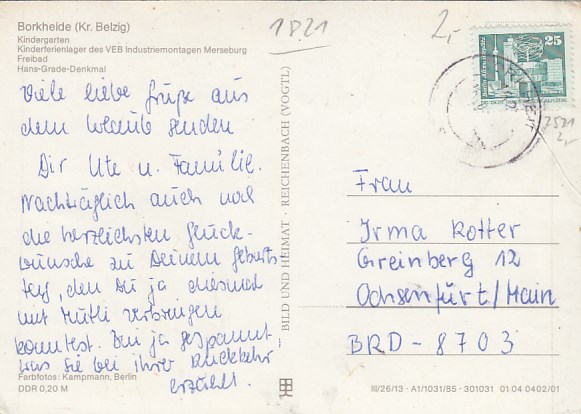 Borkheide (Kr. Belzig)
Kindergarten
Kinderferienlager des VEB Industriemontagen Merseburg
Freibad
Hans-Grade-Denkmal
1P21
2,-
25
2521
2,-
Viele liebe Grüße aus
dem Urlaub senden
Dir Ute u. Familie.
Nachträglich auch noch
die herzlichsten Glück-
wünsche zu Deinem Geburts
tag, den Du ja diesmal
mit Mutti verbringen
konntest. Bin ja gespannt,
was sie bei ihrer Rückkehr
erzählt.
BILD UND HEIMAT · REICHENBACH (VOGTL)
Frau
Irma Kotter
Greinberg 12
Ochsenfurt/Main
BRD - 8703
Farbfotos: Kampmann, Berlin
DDR 0,20 M
III/26/13 · A1/1031/85 · 301031 01 04 0402/01